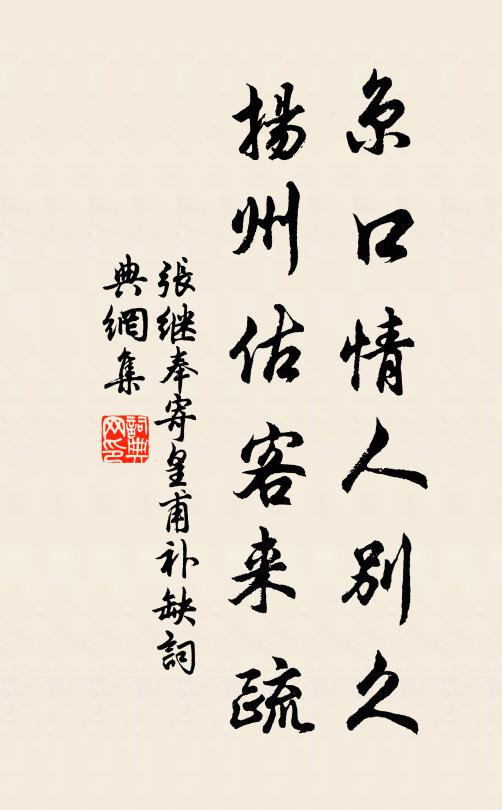 京口情人別久
揚州估客来疏
張继奉寄皇甫补缺詞
典網集
詞典
网印